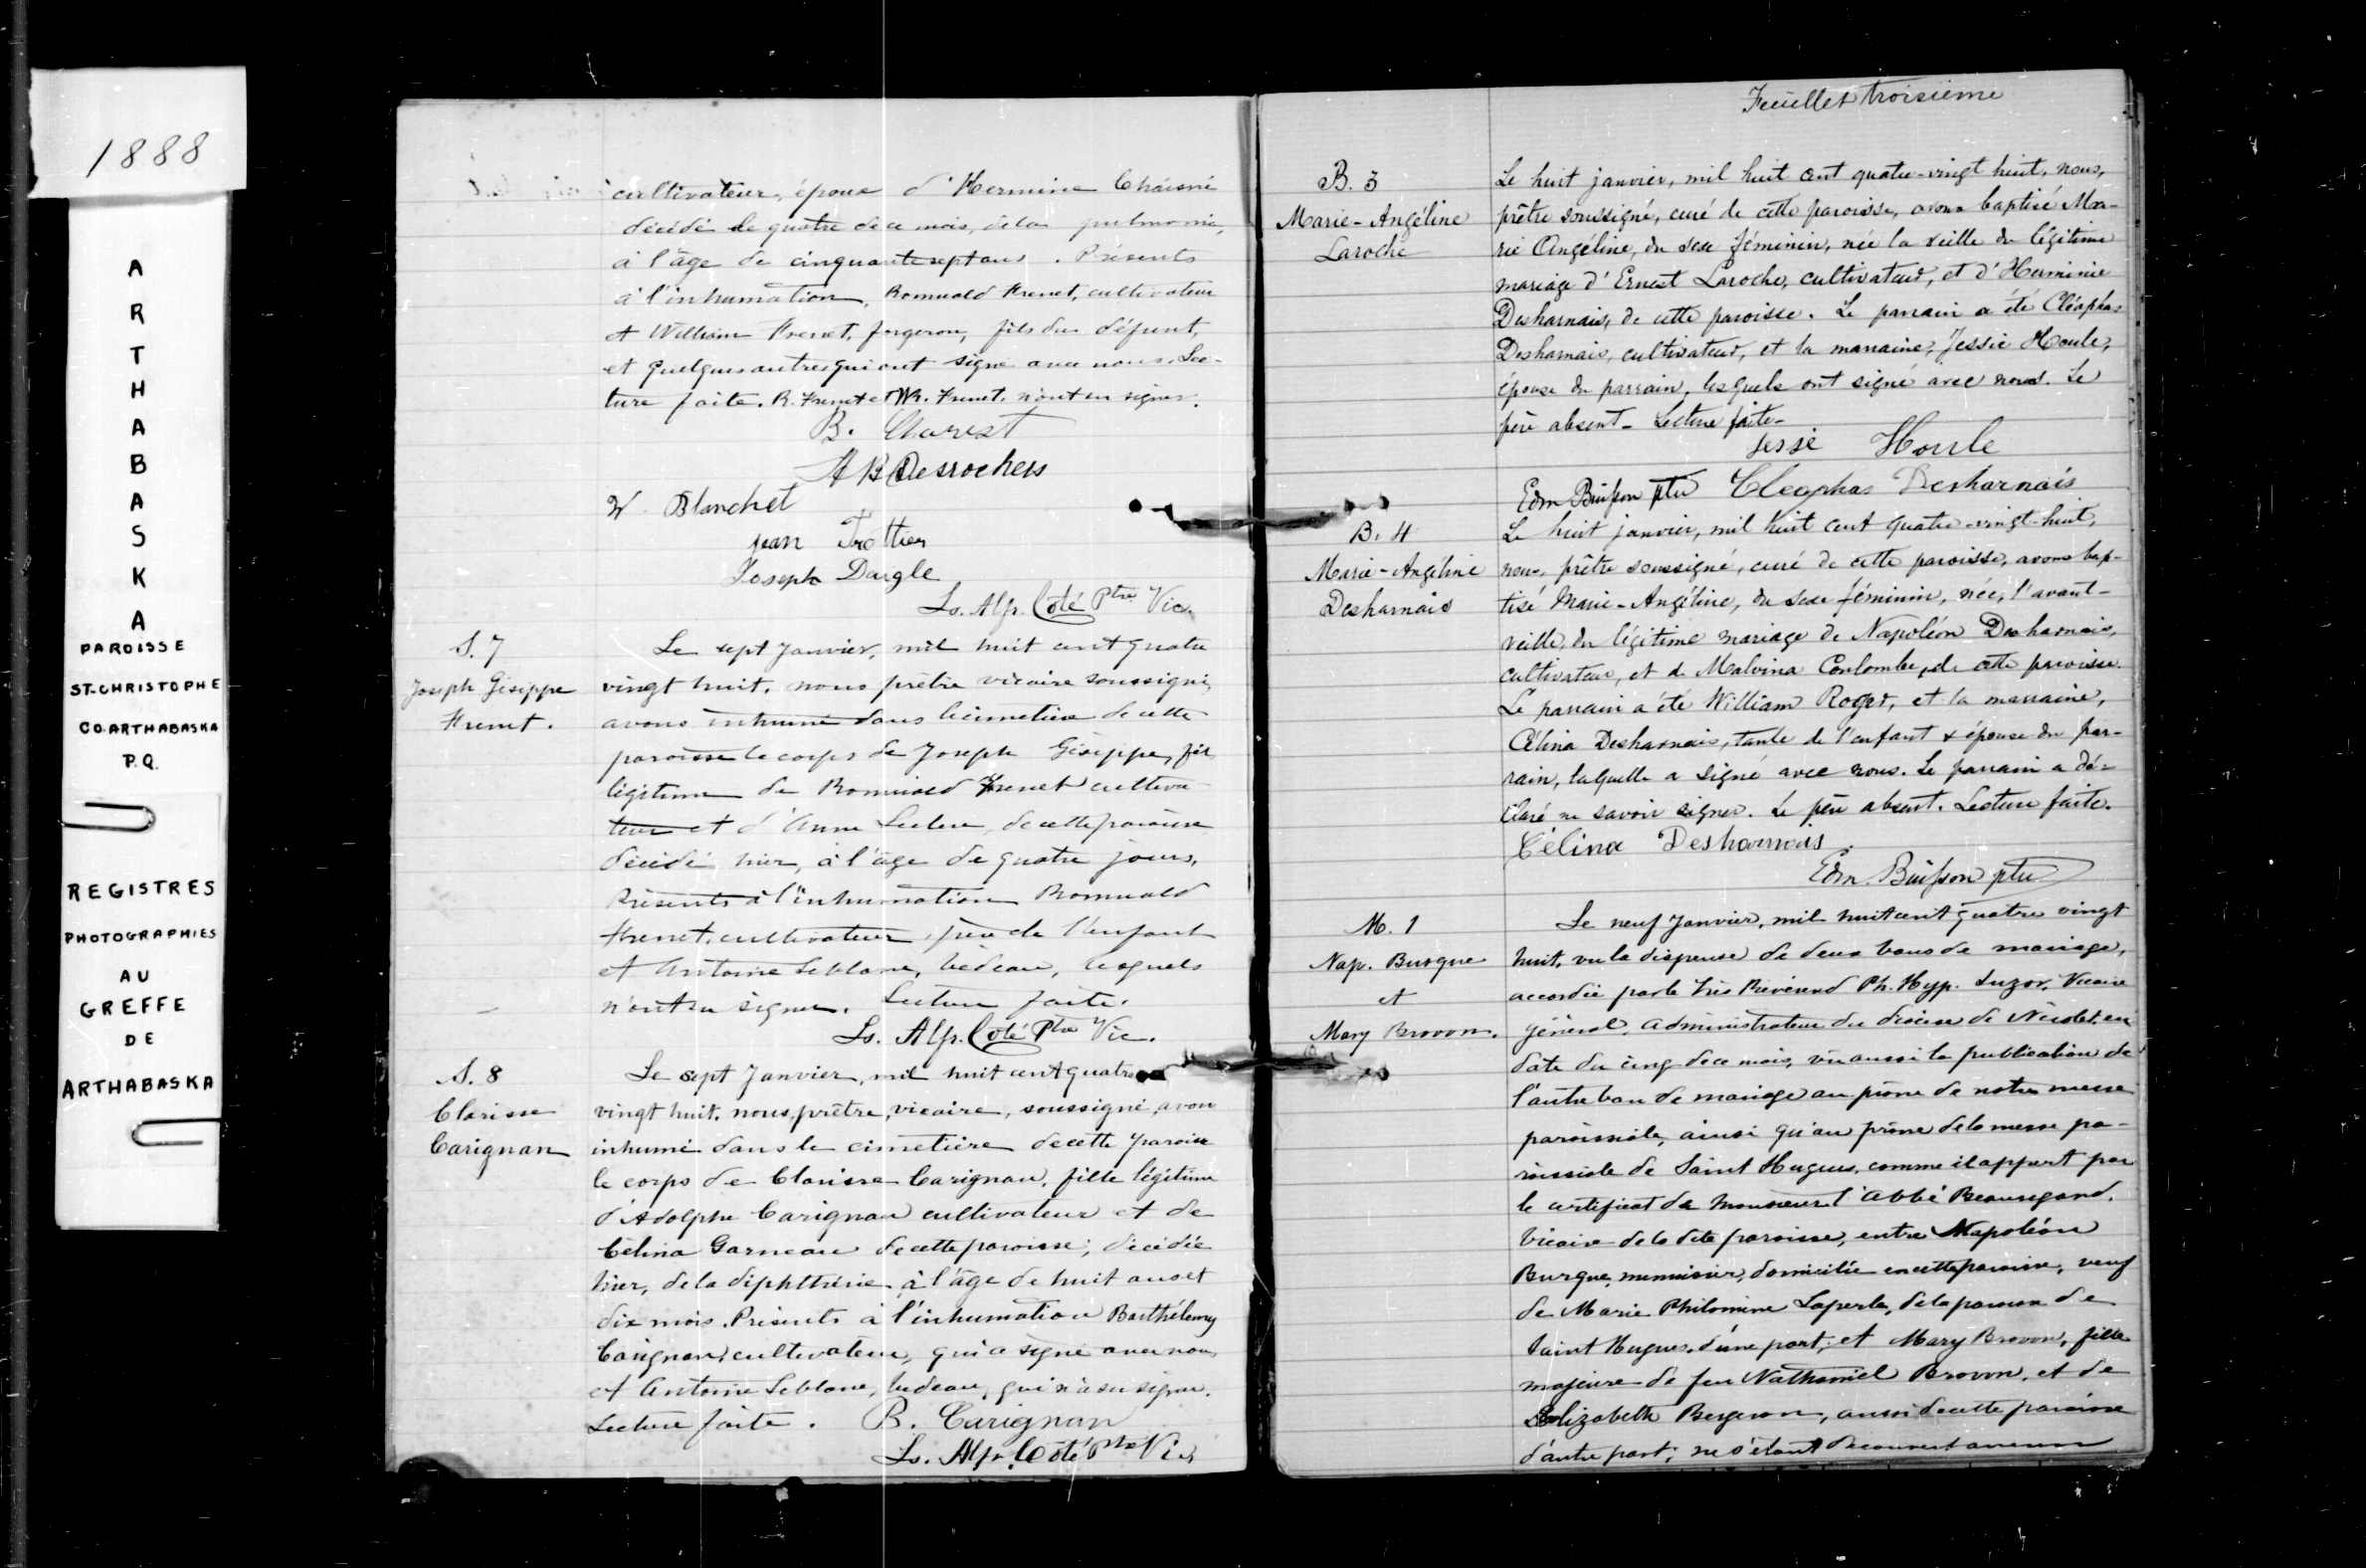 1888
A
R
T
H
A
B
A
S
K
A
PAROISSE
ST-CHRISTOPHE
CO. ARTHABASKA
P.Q.
REGISTRES
PHOTOGRAPHIES
AU
GREFFE
DE
ARTHABASKA
cultivateur, époux d'Hermine Cháisné
décédé le quatre de ce mois, de la pulmonie,
à l'âge de cinquante sept ans. Présents
à l'inhumation, Romuald Frenet, cultivateur
et William Frenet, forgeron, fils du défunt,
et quelques autres qui ont signé avec nous. Lec-
ture faite. R. Frenet et Wm. Frenet, n'ont su signer.
B. Charest
A B Desrochers
W Blanchet
jean Trottier
Joseph Daigle
Ls. Alp. Coté Ptre Vic.
S. 7
Joseph Gésippe
Frenet.
Le sept Janvier, mil huit cent quatre
vingt huit, nous prêtre vicaire soussigné,
avons inhumé dans le cimetière de cette
paroisse le corps de Joseph Gésippe, fils
légitime de Romuald Frenet cultiva-
teur et d'Anne Leclerc, de cette paroisse
décédé hier, à l'âge de quatre jours.
Présents à l'inhumation Romuald
Frenet, cultivateur, père de l'enfant
et Antoine Leblanc, bédeau, lesquels
n'ont su signer. Lecture faite.
Ls. Alp. Coté Ptre Vic.
S. 8
Clarisse
Carignan
Le sept Janvier, mil huit cent quatre
vingt huit, nous, prêtre, vicaire, soussigné, avons
inhumé dans le cimetière de cette paroisse
le corps de Clarisse Carignan, fille légitime
d'Adolphe Carignan cultivateur et de
Célina Garneau de cette paroisse; décédée
hier, de la diphthérie à l'âge de huit ans et
dix mois. Présents à l'inhumation Barthélemy
Carignan, cultivateur, qui a signé avec nous,
et Antoine Leblanc, bedeau, qui n'a su signer.
Lecture faite. B. Carignan
Ls. Alp. Coté Ptre Vic
Feuillet troisième
B. 3
Marie-Angéline
Laroche
Le huit janvier, mil huit cent quatre-vingt huit, nous,
prêtre soussigné, curé de cette paroisse, avons baptisé Ma-
rie Angéline, du sexe féminin, née la veille du légitime
mariage d'Ernest Laroche, cultivateur, et d'Herminie
Desharnais, de cette paroisse. Le parrain a été Cléophas
Desharnais, cultivateur, et la marraine, Jessie Houle,
épouse du parrain, lesquels ont signé avec nous. Le
père absent. Lecture faite.
Jessé Houle
Edm Buisson ptre Cleophas Desharnais
B. 4
Marie-Angéline
Desharnais
Le huit janvier, mil huit cent quatre-vingt-huit,
nous, prêtre soussigné, curé de cette paroisse, avons bap-
tisé Marie-Angéline, du sexe féminin, née, l'avant-
veille, du légitime mariage de Napoléon Desharnais,
cultivateur, et de Malvina Coulombe, de cette paroisse.
Le parrain a été William Roger, et la marraine,
Célina Desharnais, tante de l'enfant & épouse du par-
rain, laquelle a signé avec nous. Le parrain a dé-
claré ne savoir signer. Le père absent. Lecture faite.
Célina Desharnais
Edm. Buisson ptre
M. 1
Nap. Burque
et
Mary Brown.
Le neuf Janvier, mil huit cent quatre vingt
huit, vu la dispense de deux bans de mariage,
accordée par le très Révérend Ph. Hyp. Suzor, Vicaire
général, administrateur du diocèse de Nicolet, en
date du cinq de ce mois, vu aussi la publication de
l'autre ban de mariage au prône de notre messe
paroissiale, ainsi qu'au prône de la messe pa-
roissiale de Saint Hugues, comme il appert par
le certificat de Monsieur l'abbé Beauregard,
Vicaire de la dite paroisse, entre Napoléon
Burque, menuisier, domicilié en cette paroisse, veuf
de Marie Philomène Laperle, de la paroisse de
Saint Hugues, d'une part; et Mary Brown, fille
majeure de feu Nathaniel Brown, et de
Elizabeth Bergeron, aussi de cette paroisse
d'autre part; ne s'étant découvert aucun